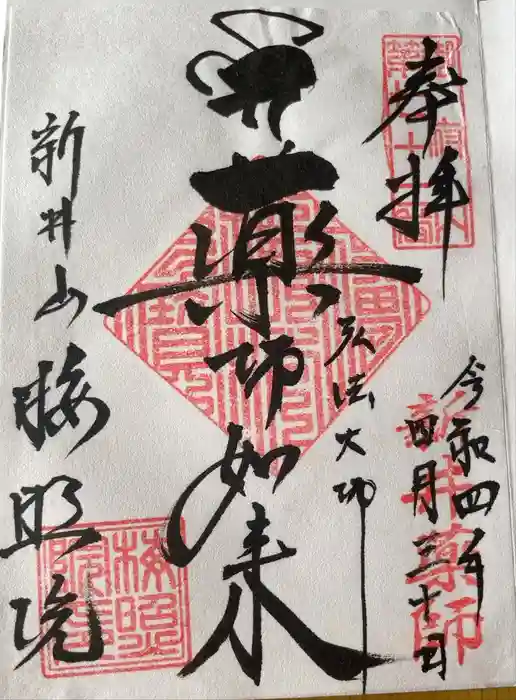 奉拝
令和四年
四月三十日
新井薬師
弘法大師
薬師如来
新井山 梅照院
梅照院